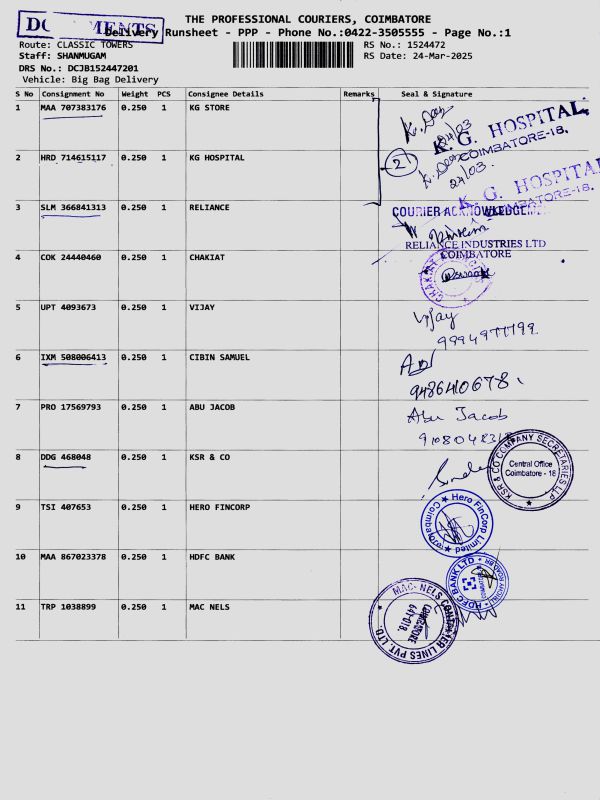 DOCUMENTS
THE PROFESSIONAL COURIERS, COIMBATORE
Delivery Runsheet - PPP - Phone No.:0422-3505555 - Page No.:1
Route: CLASSIC TOWERS
RS No.: 1524472
Staff: SHANMUGAM
RS Date: 24-Mar-2025
DRS No.: DCJB152447201
Vehicle: Big Bag Delivery
S No Consignment No Weight PCS Consignee Details Remarks Seal & Signature
1 MAA 707383176 0.250 1 KG STORE
K. G. HOSPITAL,
COIMBATORE-18.
24/03
2 HRD 714615117 0.250 1 KG HOSPITAL
2
24/03.
K. G. HOSPITAL
COIMBATORE-18.
3 SLM 366841313 0.250 1 RELIANCE
COURIER ACKNOWLEDGE
RELIANCE INDUSTRIES LTD
COIMBATORE
4 COK 24440460 0.250 1 CHAKIAT
CHAKIAT
5 UPT 4093673 0.250 1 VIJAY
Vijay
9994977799
6 IXM 508006413 0.250 1 CIBIN SAMUEL
9486410678
7 PRO 17569793 0.250 1 ABU JACOB
Abu Jacob
8 DDG 468048 0.250 1 KSR & CO
KSR & CO COMPANY SECRETARIES LLP
Central Office
Coimbatore - 18
9 TSI 407653 0.250 1 HERO FINCORP
Hero FinCorp Limited
Coimbatore
10 MAA 867023378 0.250 1 HDFC BANK
HDFC BANK LTD
11 TRP 1038899 0.250 1 MAC NELS
MAC-NELS CONTAINER LINES PVT. LTD.
COIMBATORE
641-018.